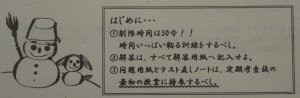 はじめに・・・
①制限時間は50分!!
時間いっぱい粘る訓練をするべし。
②解答は、すべて解答用紙へ記入せよ。
③問題用紙とテスト直しノートは、定期考査後の
最初の授業に持参するべし。